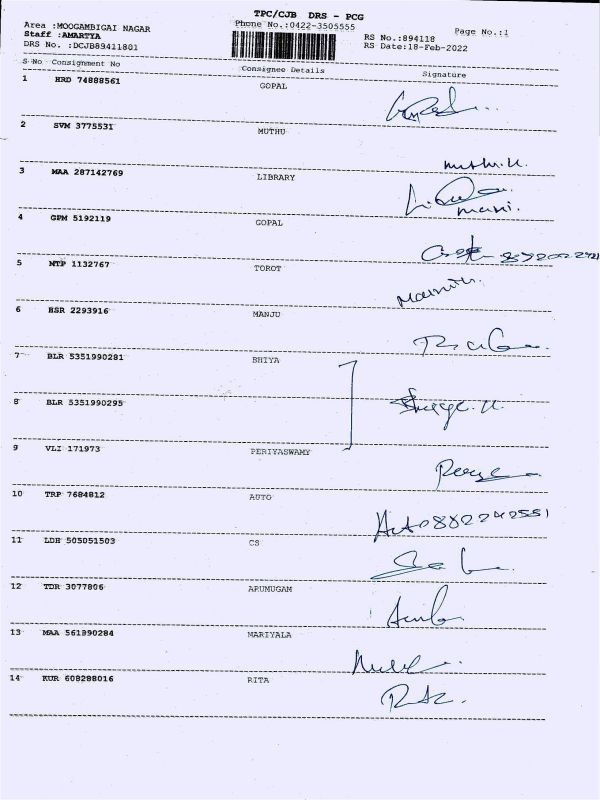 TPC/CJB DRS - PCG
Area :MOOGAMBIGAI NAGAR
Phone No.:0422-3505555
Page No.:1
Staff :AMARTYA
RS No.:894118
DRS No. :DCJB89411801
RS Date:18-Feb-2022
S No Consignment No Consignee Details Signature
1 HRD 74888561 GOPAL
2 SVM 3775531 MUTHU
muthu.u.
3 MAA 287142769 LIBRARY
mani.
4 GPM 5192119 GOPAL
5 NTP 1132767 TOROT
6 HSR 2293916 MANJU
7 BLR 5351990281 BHIYA
8 BLR 5351990295
9 VLI 171973 PERIYASWAMY
10 TRP 7684812 AUTO
Auto 8822242551
11 LDH 505051503 CS
12 TDR 3077806 ARUMUGAM
13 MAA 561990284 MARIYALA
14 KUR 608288016 RITA